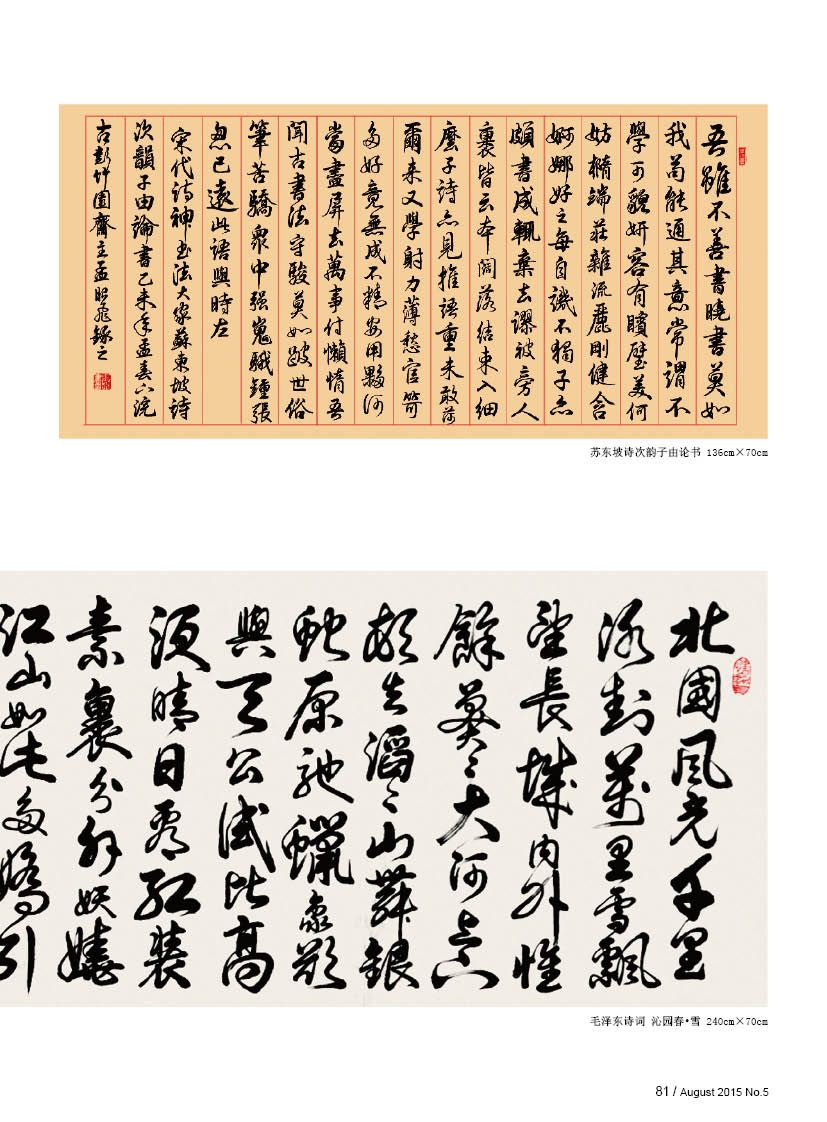 吾雖不善書曉書莫如
我苟能通其意常謂不
學可貌妍容有矉璧美何
妨橢端莊雜流麗剛健含
婀娜好之每自譏不獨子亦
頗書成輒棄去謬被旁人
裹皆云本闊落結束入細
麼子詩亦見推語重未敢荷
爾来又學射力薄愁官笴
多好竟無成不精安用夥何
當盡屏去萬事付懶惰吾
聞古書法守駿莫如跛世俗
筆苦驕衆中强嵬騀鍾張
忽已遠此語與時左
宋代詩神書法大家蘇東坡詩
次韻子由論書乙未年孟春浣
古彭竹園齋主孟昭錄之
苏东坡诗次韵子由论书 136cm×70cm
北國風光千里
冰封萬里雪飄
望長城内外惟
餘莽々大河上下
頓失滔々山舞銀
蛇原馳蠟象欲
與天公試比高
須晴日看紅裝
素裹分外妖嬈
江山如此多嬌引
毛泽东诗词 沁园春•雪 240cm×70cm
81 / August 2015 No.5